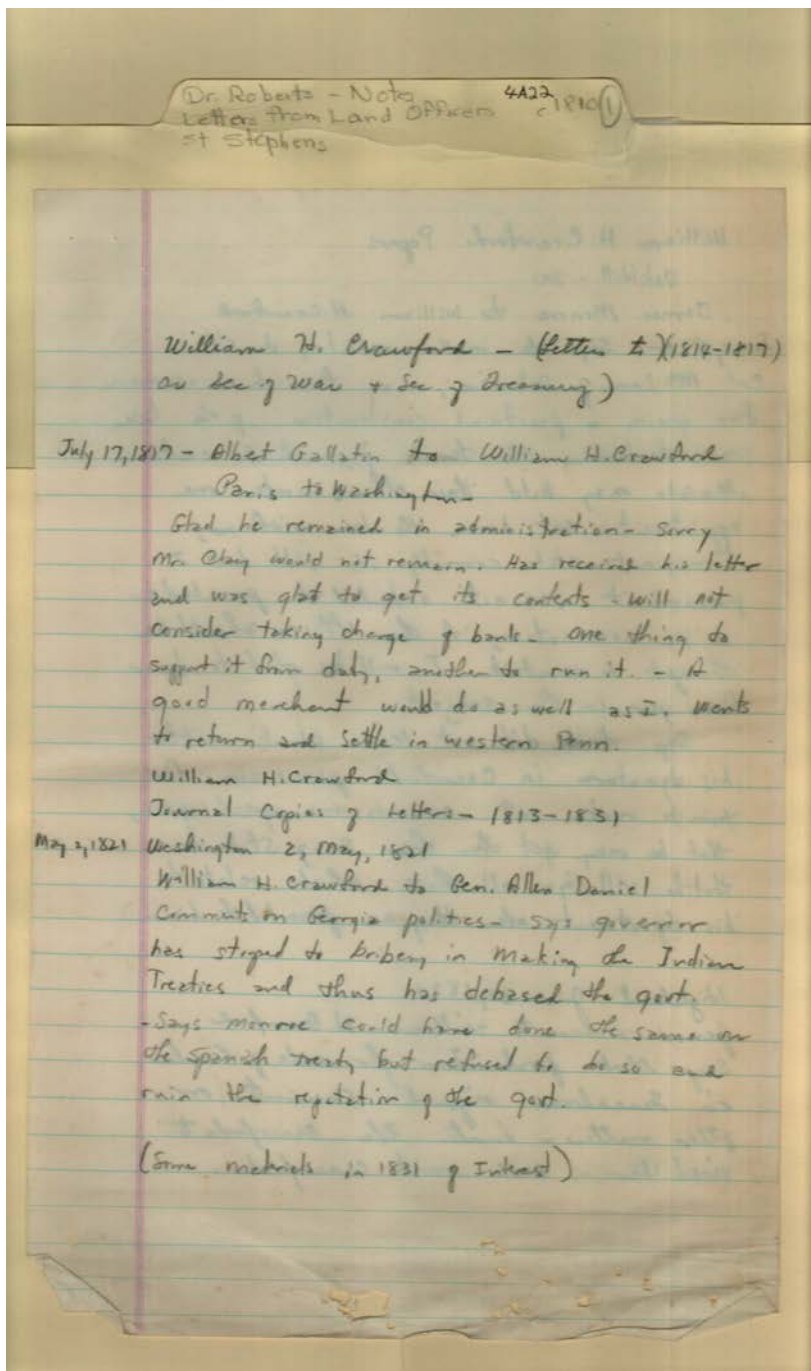 Dr. Roberts - Note 4A22 c 1810 (1)
Letters from Land Officers
St Stephens
William H. Crawford - (Letters to) (1814-1817)
as Sec of War + Sec of Treasury)
July 17, 1817 - Albert Gallatin to William H. Crawford
Paris to Washington -
Glad he remained in administration - Sorry
Mr. Clay would not remain. Has received his letter
and was glat to get its contents - will not
consider taking charge of bank - one thing to
support it from duty, another to run it. - A
good merchant would do as well as I. wants
to return and settle in western Penn.
William H. Crawford
Journal Copies of Letters - 1813-1831
May 2, 1821 Washington 2, May, 1821
William H. Crawford to Gen. Allen Daniel
Comments on Georgia politics - says governor
has stoped to bribery in making the Indian
Treaties and thus has debased the govt.
- Says monroe could have done the same on
the Spanish treaty but refused to do so and
ruin the reputation of the govt.
(Some materials in 1831 of Interest)